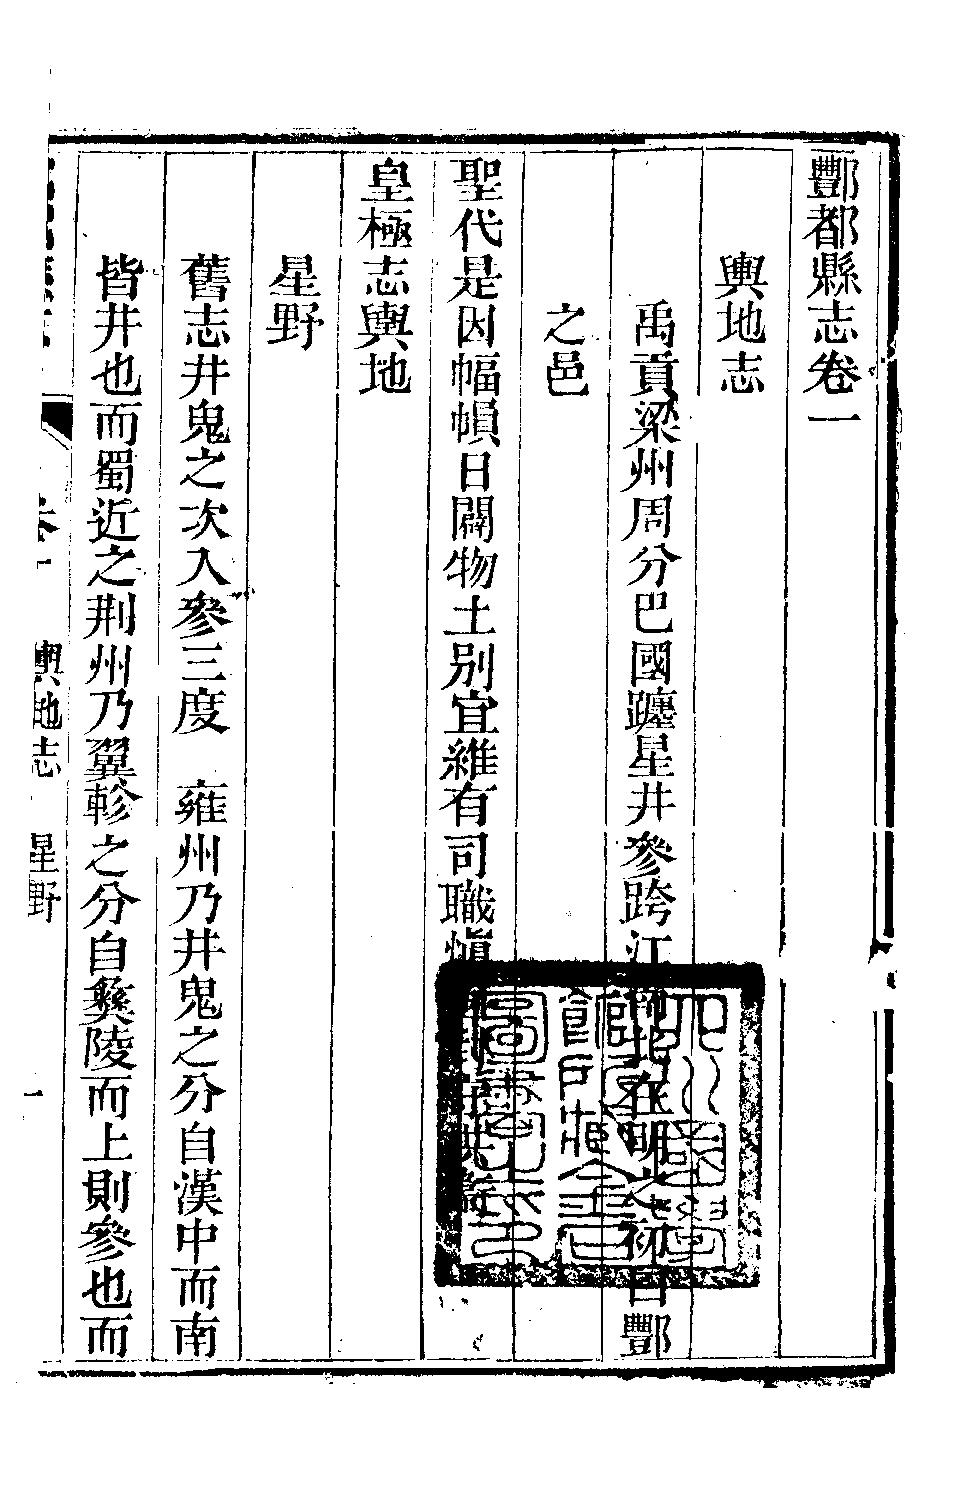 酆都縣志卷一
輿地志
禹貢梁州周分巴國躔星井參跨江南北在明之初曰酆
之邑
聖代是因幅幀日闢物土別宜雖有司職慎
皇極志輿地
星野
舊志井鬼之次入參三度 雍州乃井鬼之分自漢中而南
皆井也而蜀近之荆州乃翼軫之分自彝陵而上則參也而
卷一 輿地志 星野 一